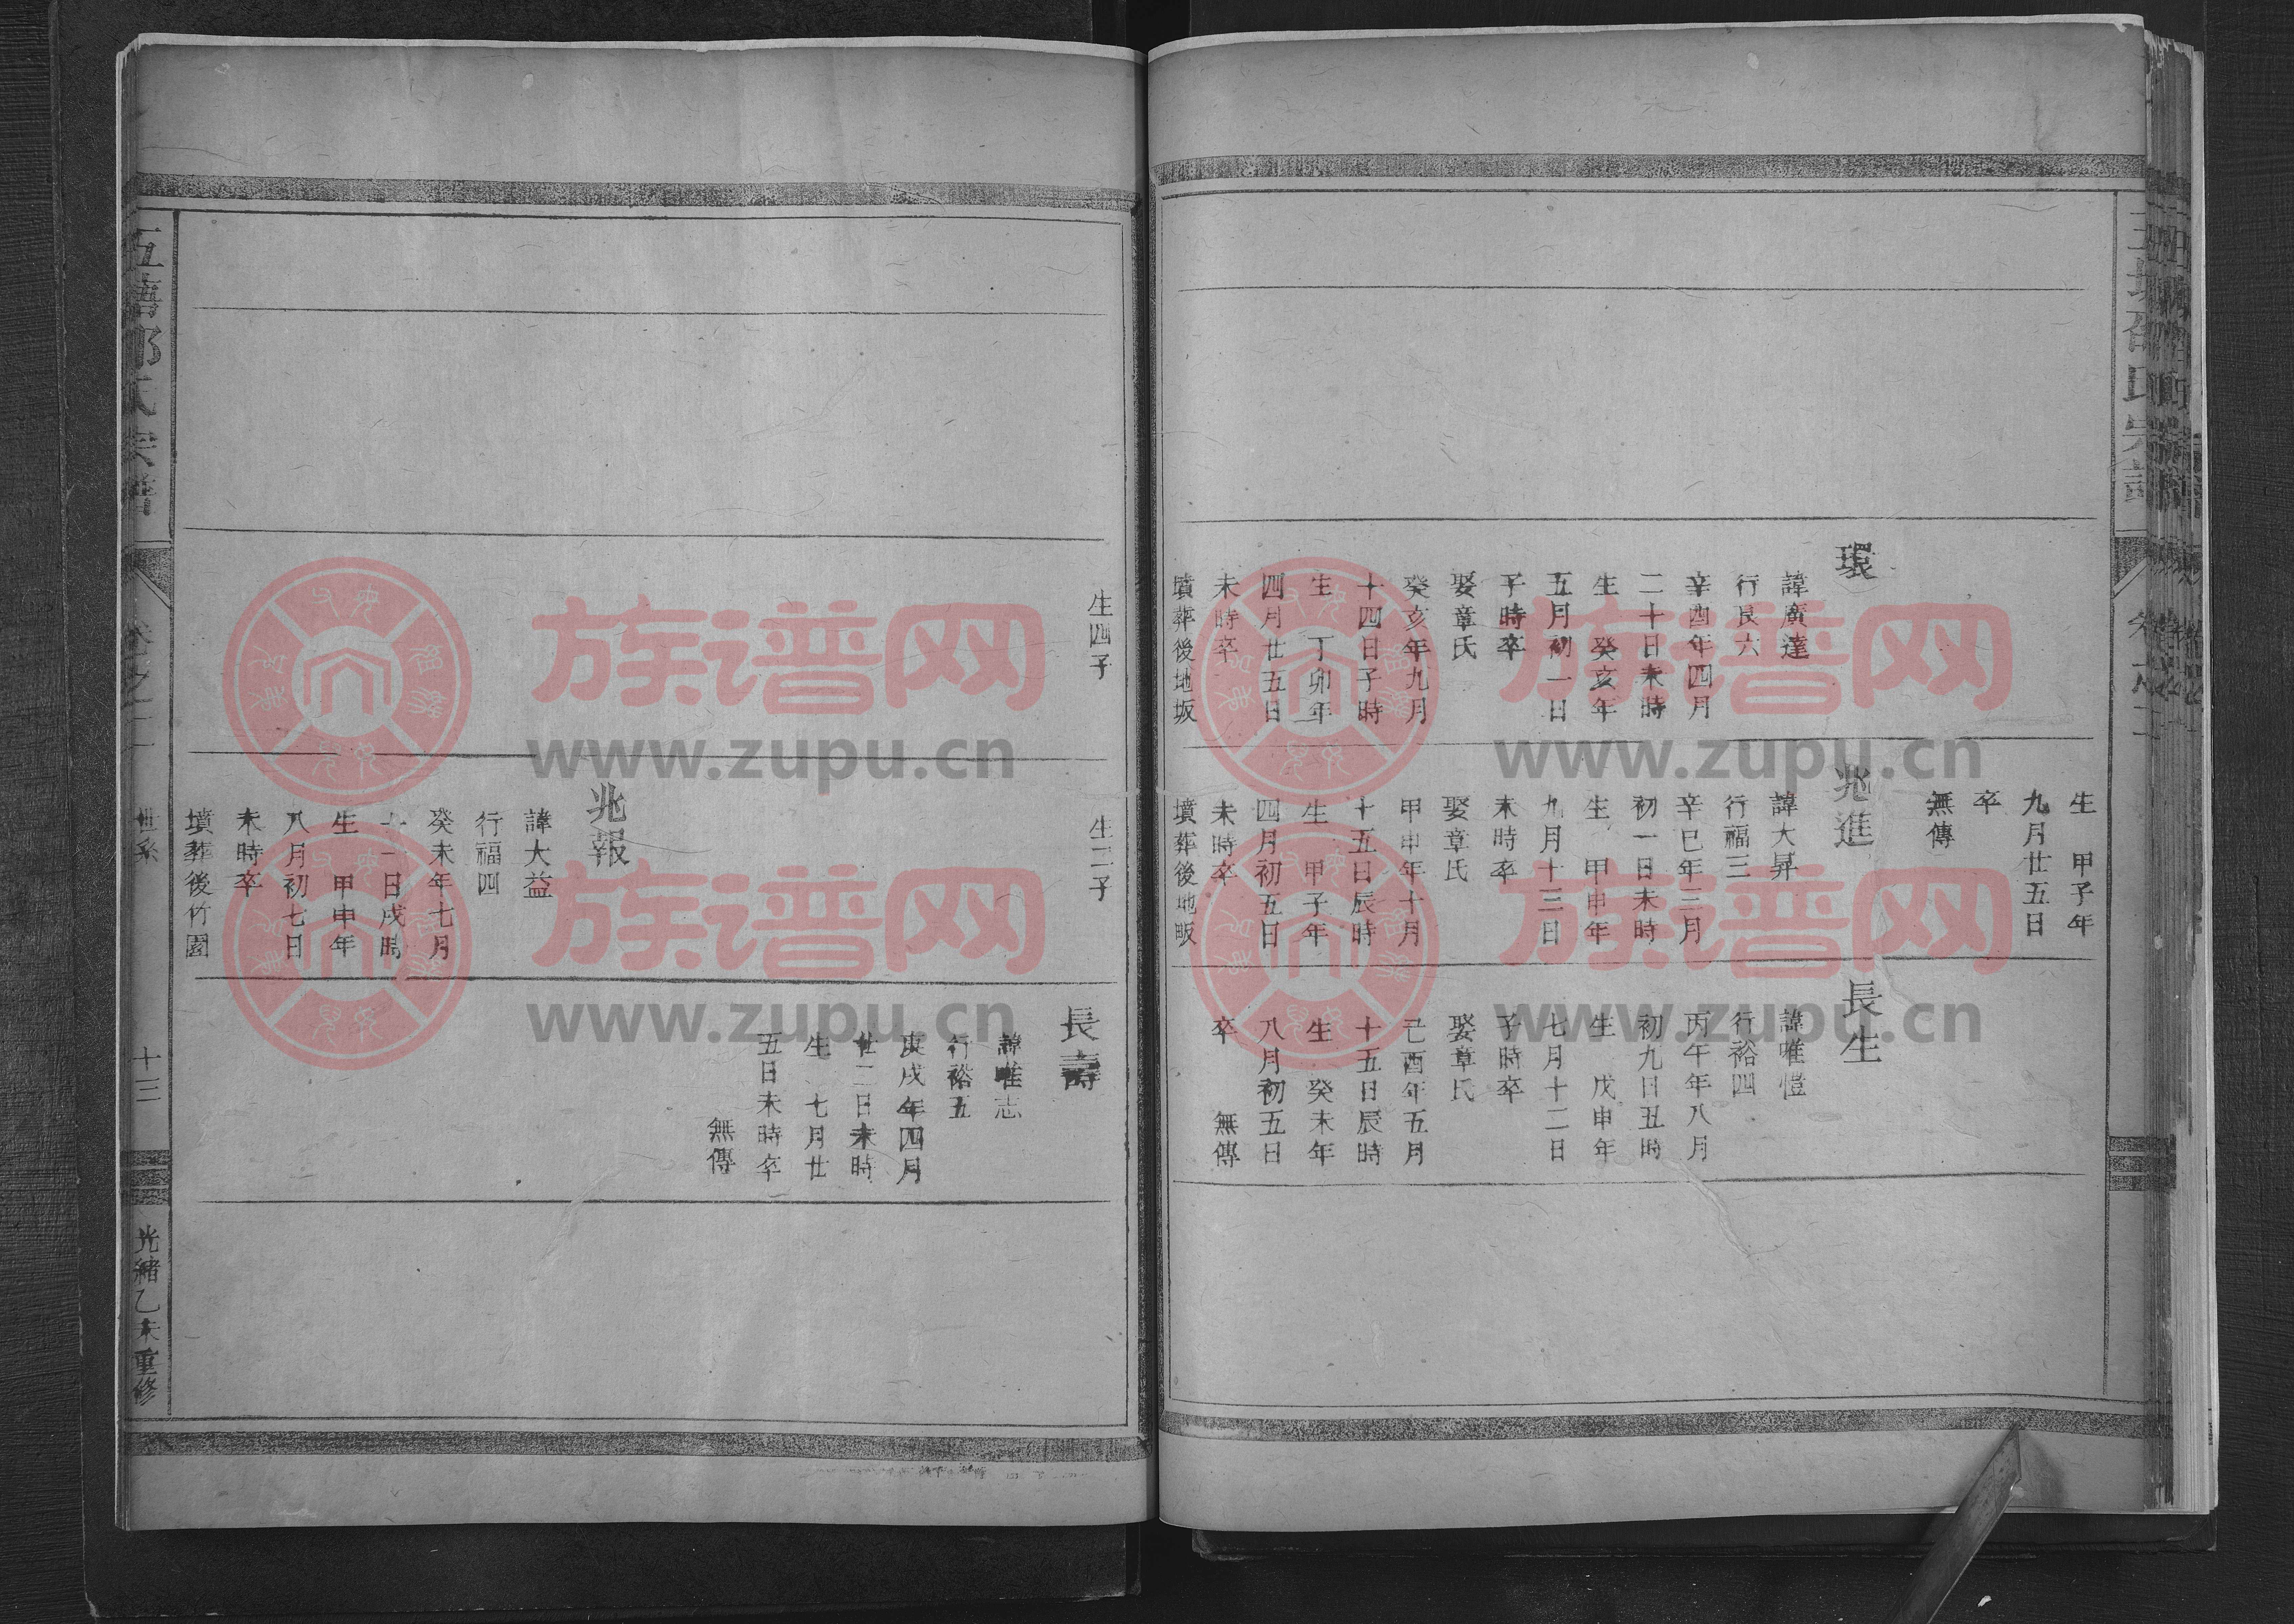 環
諱廣達
行艮六
辛酉年四月
二十日未時
生 癸亥年
五月初一日
子時卒
娶章氏
癸亥年九月
十四日子時
生 丁卯年
四月廿五日
未時卒
墳葬後地坂
生四子
生 甲子年
九月廿五日
卒
無傳
兆進
諱大昇
行福三
辛巳年三月
初一日未時
生 甲申年
九月十三日
未時卒
娶章氏
甲申年十月
十五日辰時
生 甲子年
四月初五日
未時卒
墳葬後地畈
生二子
兆報
諱大益
行福四
癸未年七月
十一日戌時
生 甲申年
八月初七日
未時卒
墳葬後竹園
長生
諱唯愷
行裕四
丙午年八月
初九日丑時
生 戊申年
七月十二日
子時卒
娶章氏
己酉年五月
十五日辰時
生 癸未年
八月初五日
卒 無傳
長壽
諱唯志
行裕五
庚戌年四月
廿二日未時
生 七月廿
五日未時卒
無傳
世系
十三
光緒乙未重修
族谱网
www.zupu.cn
族谱网
www.zupu.cn
族谱网
www.zupu.cn
族谱网
www.zupu.cn